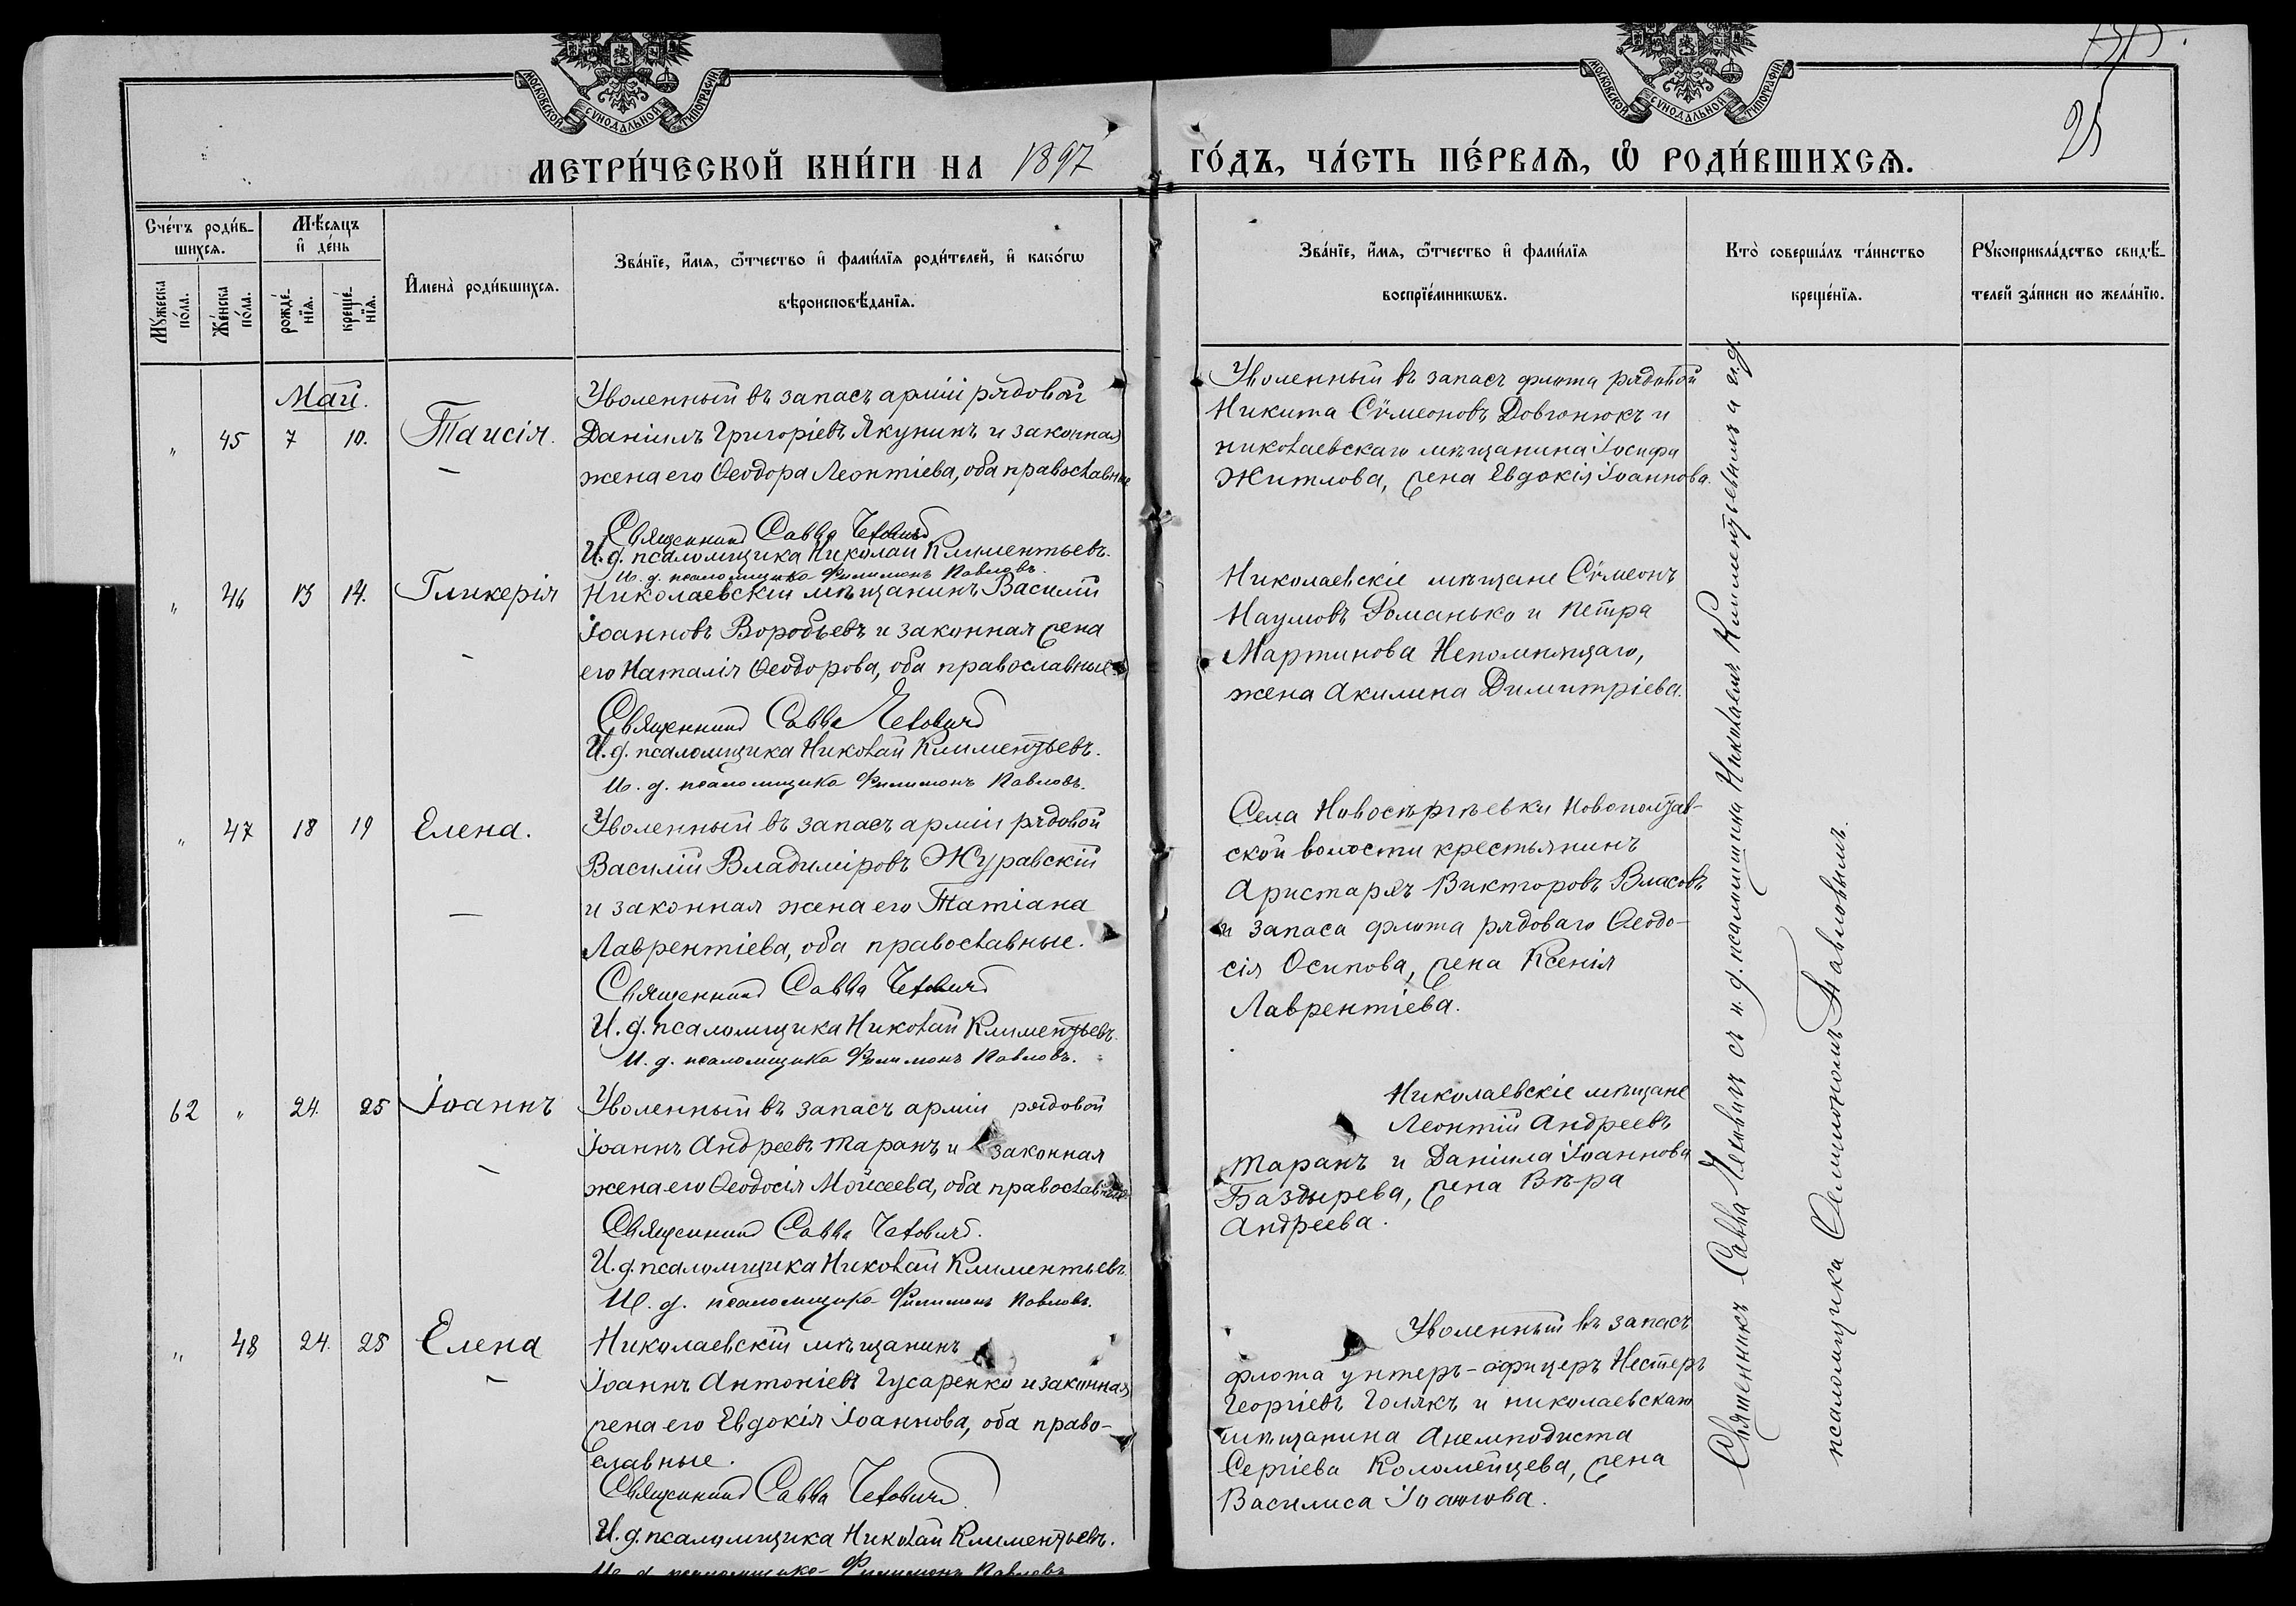 МОСКОВСКОЙ СѴНОДАЛЬНОЙ ТИПОГРАФІИ
МОСКОВСКОЙ СѴНОДАЛЬНОЙ ТИПОГРАФІИ
25
МЕТРИ́ЧЕСКОЙ КНИ́ГИ НА 1897 ГО́ДЪ, ЧА́СТЬ ПЕ́РВАѦ, Ѡ РОДИ́ВШИХСѦ.
Сче́тъ роди́в-
шихсѧ.
Мꙋ́жеска по́ла.
Же́нска по́ла.
Мѣ́сѧцъ
и де́нь
рожде́-нїѧ.
креще́-нїѧ.
Имена̀ роди́вшихсѧ.
Зва́нїе, и́мѧ, ѻ́тчество и фами́лїѧ роди́телей, и како́гѡ
вѣроисповѣ́данїѧ.
Зва́нїе, и́мѧ, ѻ́тчество и фами́лїѧ
воспрїе́мникѡвъ.
Кто̀ соверша́лъ та́инство
креще́нїѧ.
Рꙋкоприкла́дство свидѣ́-
телей за́писи по жела́нїю.
Май.
" 45 7 10. Таисія.
Уволенный въ запасъ арміи рядовой
Даніилъ Григоріевъ Якунинъ и законная
жена его Ѳеодора Леонтіева, оба православные
Священникъ Савва
И. д. псаломщика Николай Климентьевъ.
И. д. псаломщика Филимонъ Павловъ.
Уволенный въ запасъ флота рядовой
Никита Сѵмеоновъ Довгонюкъ и
николаевскаго мѣщанина Іосифа
Житлова, жена Евдокія Іоаннова.
" 46 13 14. Гликерія
Николаевскій мѣщанинъ Василій
Іоанновъ Воробьевъ и законная жена
его Наталія Ѳеодорова, оба православные
Священникъ Савва
И. д. псаломщика Николай Климентьевъ.
И. д. псаломщика Филимонъ Павловъ.
Николаевскіе мѣщане Сѵмеонъ
Наумовъ Романько и Петра
Мартинова Непомнящаго,
жена Акилина Димитріева.
" 47 18 19 Елена.
Уволенный въ запасъ арміи рядовой
Василій Владиміровъ Журавскій
и законная жена его Татіана
Лаврентіева, оба православные.
Священникъ Савва
И. д. псаломщика Николай Климентьевъ.
И. д. псаломщика Филимонъ Павловъ.
Села Новосѣргѣевки Новополтав-
ской волости крестьянинъ
Аристархъ Викторовъ Власовъ
и запаса флота рядоваго Ѳеодо-
сія Осипова, жена Ксенія
Лаврентіева.
62 " 24. 25 Іоаннъ
Уволенный въ запасъ арміи рядовой
Іоаннъ Андреевъ Таранъ и законная
жена его Ѳеодосія Мойсеева, оба православные
Священникъ Савва
И. д. псаломщика Николай Климентьевъ.
И. д. псаломщика Филимонъ Павловъ.
Николаевскіе мѣщане
Леонтій Андреевъ
Таранъ и Даніила Іоаннова
Баздырева, жена Вѣра
Андреева.
" 48 24. 25 Елена
Николаевскій мѣщанинъ
Іоаннъ Антоніевъ Гусаренко и законная
жена его Евдокія Іоаннова, оба право-
славные.
Священникъ Савва
И. д. псаломщика Николай Климентьевъ.
И. д. псаломщика Филимонъ Павловъ
Уволенный въ запасъ
флота унтеръ-офицеръ Нестеръ
Георгіевъ Голякъ и николаевскаго
мѣщанина Анемподиста
Сергіева Коломейцева, жена
Василиса
Священникъ Савва съ и. д. псаломщика Николаемъ Климентьевымъ и и. д.
псаломщика Филимономъ Павловымъ.